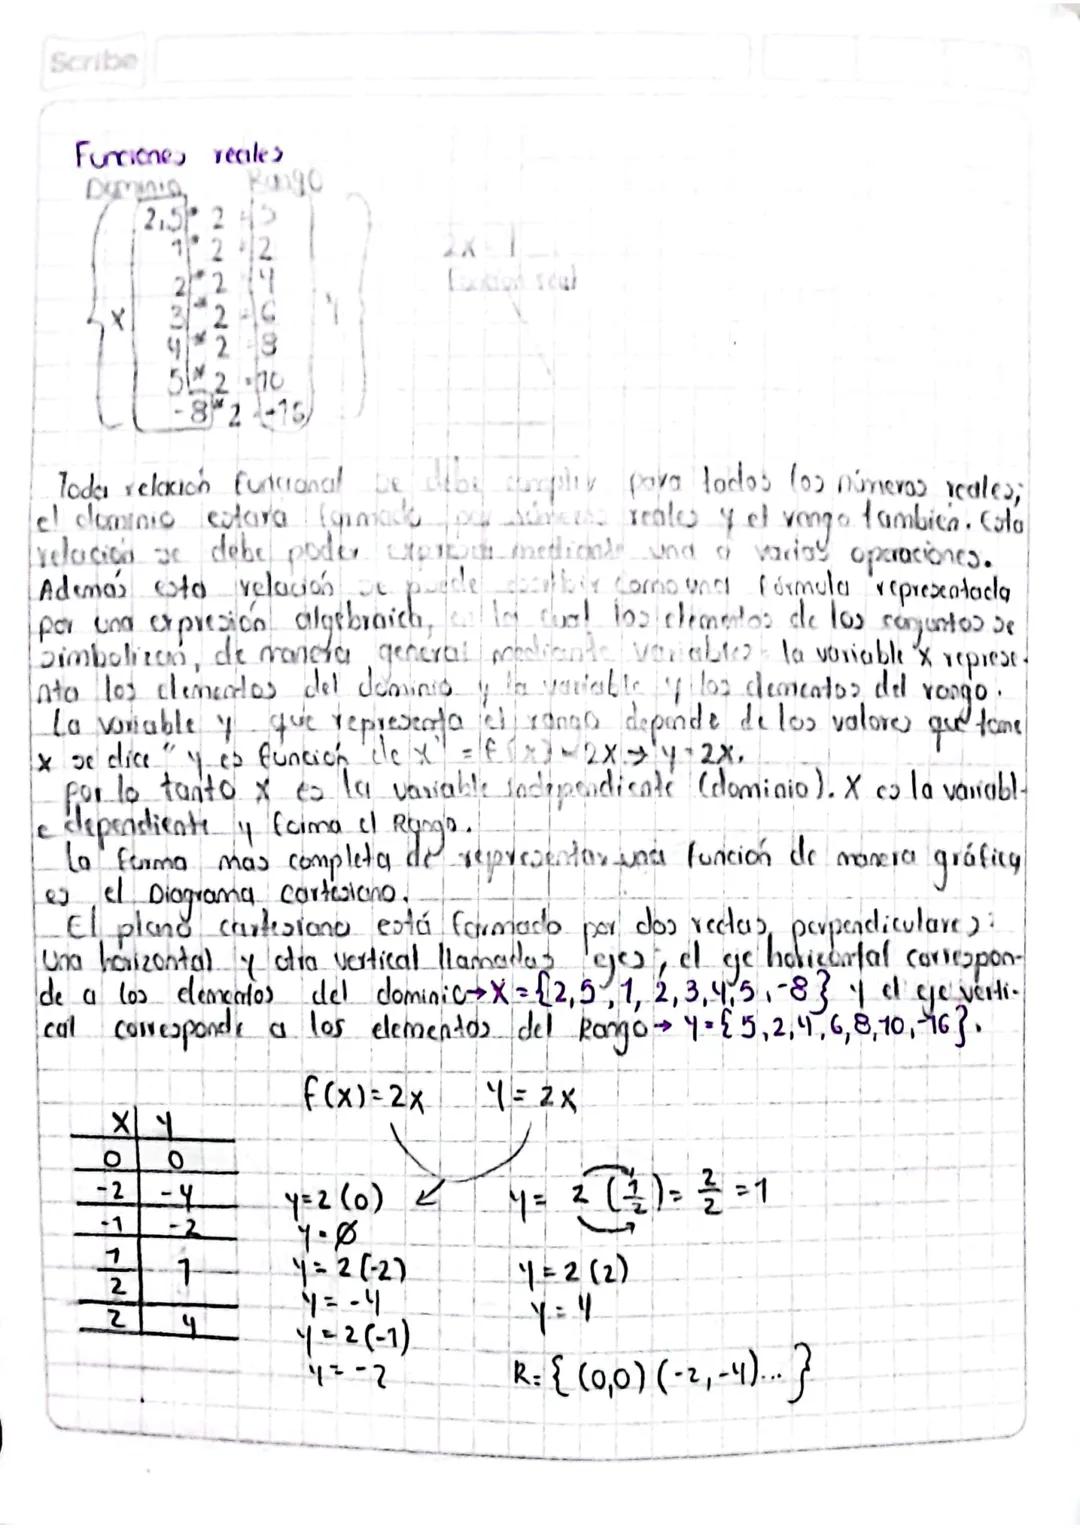 Scribe
Funciones reales
Dominio Rango
2,5 * 2 = 5
1 * 2 = 2
2 * 2 4
X 3 * 2 = 6 Y
4 * 2 8
5 * 2 = 10
-8 * 2 -16
2x
función real
Toda relación funcional se debe cumplir para todos los números reales;
el dominio estara formado por números reales y el rango también. Esta
relación se debe poder expresar mediante una o varias operaciones.
Además esta relación se puede escribir como una fórmula representada
por una expresión algebraica, en la cual los elementos de los conjuntos se
simbolizan, de manera general mediante variables la variable x represe-
nta los elementos del dominio y la variable y los elementos del rango.
La variable y que representa el rango depende de los valores que tome
x se dice "y es función de x" = f(x) = 2x → y = 2x.
por lo tanto x es la variable independiente (dominio). X es la variabl-
e dependiente y forma el Rango.
La forma mas completa de representar una función de manera gráfica
es el Diagrama cartesiano.
El plano cartesiano está formado por dos rectas perpendiculares:
Una horizontal y otra vertical llamadas "ejes", el eje horizontal correspon-
de a los elementos del dominio→X={2,5, 1, 2, 3, 4, 5, -8} y el eje verti-
cal corresponde a los elementos del Rango→ y={5, 2, 4, 6, 8, 10, -16}.
f(x)=2x y=2x
x y
0 0
-2 -4
-1 -2
1/2 1
2 4
y=2(0)
y=0
y=2(-2)
y=-4
y=2(-1)
y=-2
y= 2 (1/2)= 2/2 =1
y=2(2)
y=4
R={(0,0)(-2,-4)...}